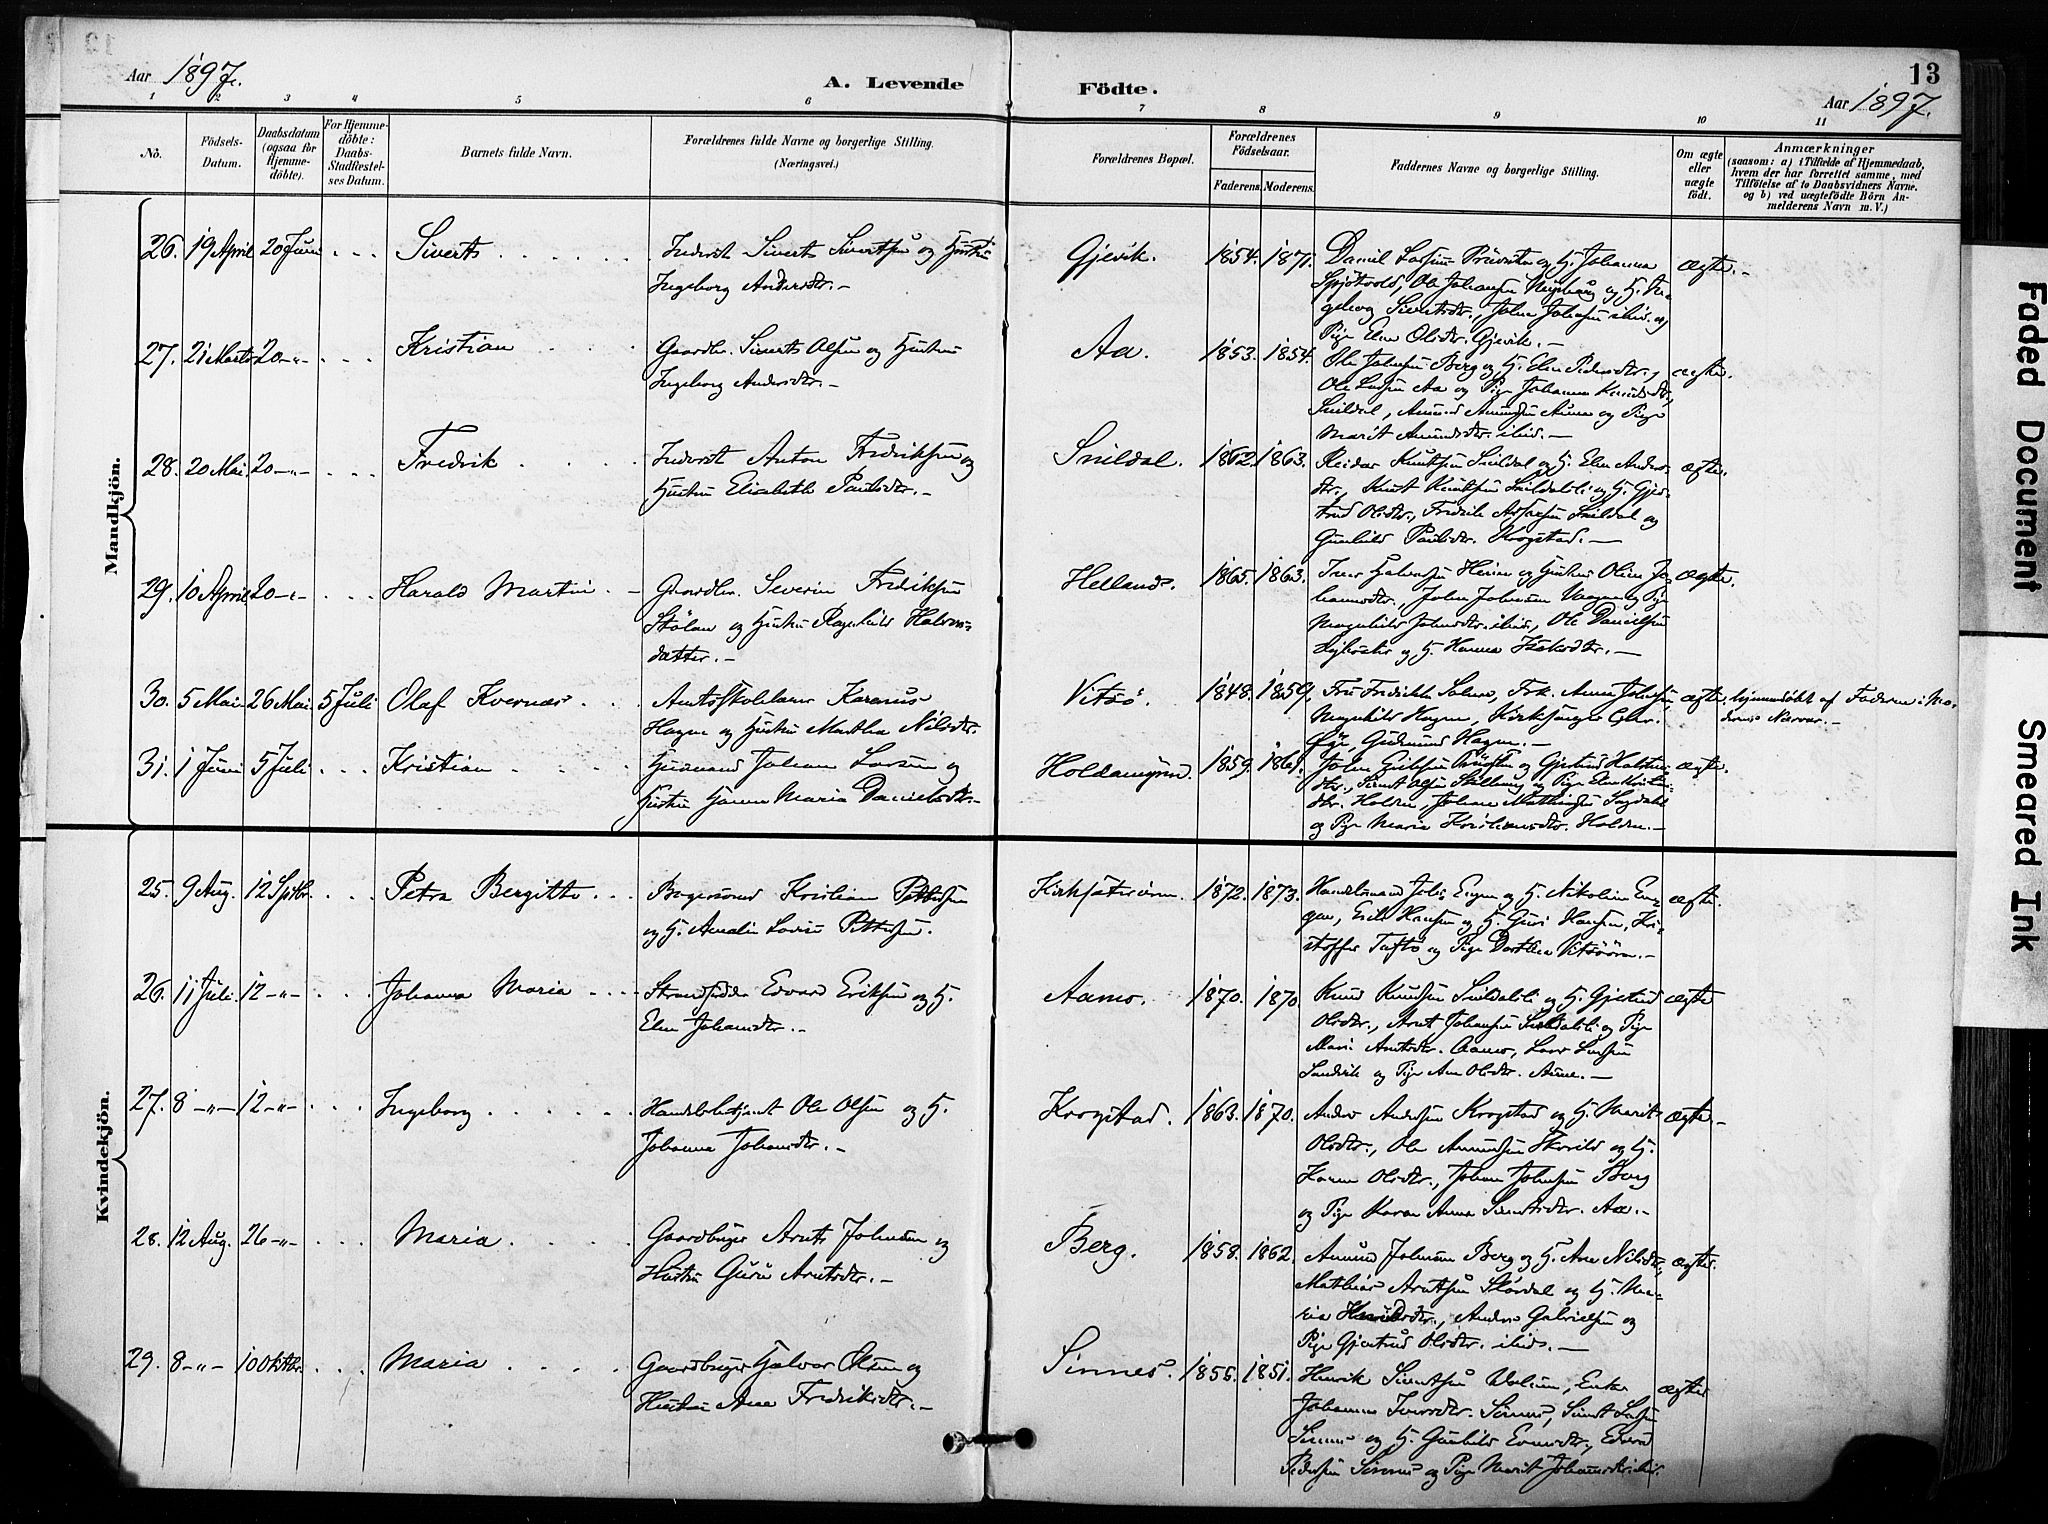 Aar 1897. A. Levende Födte. Aar 1897. 13
1 2 3 4 5 6 7 8 9 10 11
No. Födsels-Datum. Daabsdatum (ogsaa for Hjemme-döbte). For Hjemme-döbte: Daabs-Stadfæstel-ses Datum. Barnets fulde Navn. Forældrenes fulde Navne og borgerlige Stilling. (Næringsvei.) Forældrenes Bopæl. Forældrenes Födselsaar. Faderens. Moderens. Faddernes Navne og borgerlige Stilling. Om ægte eller uægte födt. Anmærkninger (saasom: a) i Tilfælde af Hjemmedaab, hvem der har forrettet samme, med Tilföielse af to Daabsvidners Navne, og b) ved uægtefödte Börn Anmelderens Navn m. V.)
Mandkjön.
26. 19 April 20 Juni Siverts Inderst Siverts Sivertsen og Hustru Gjevik. 1854. 1871. Daniel Larsen og H. Johanna ægte.
Ingeborg Andersdtr. Ole Johansen og H. In-
geborg Sivertsdtr., John Johnsen ibid. og
Pige Elen Olsdtr. Gjevik.
27. 21 Marts 20 -"- Kristian Gaardbr. Siverts Olsen og Hustru Aa. 1853. 1854. Ole Johnsen Berg og H. Elen Pedersdtr., ægte.
Ingeborg Andersdtr. Ole Larsen Aa og Pige Johanna Knudsdtr.,
Snildal, Amund Amundsen Aune og Pige
Marit Amundsdtr. ibid.
28. 20 Mai 20 -"- Fredrik Inderst Anton Fredriksen og Snildal. 1862. 1863. Reidar Knutsen Snildal og H. Elen Anders- ægte.
Hustru Elisabeth Paulsdtr. dtr., Knut Knutsen Snildalsli og H. Gjer-
trud Olsdtr., Fredrik Snildal og
Gunhild Paulsdtr. Krogstad.
29. 10 April 20 -"- Harald Martin Gaardbr. Severin Fredriksen Helland. 1865. 1863. Iver Halvorsen og Hustru Oline Jo- ægte.
Stölan og Hustru Ragnhild Halvors- hannesdtr., John Johnsen Vaagan og Pige
datter. Magnhild Johnsdtr. ibid., Ole Danielsen
og H. Hanna
30. 5 Mai 26 Mai 5 Juli Olaf Kvernæs Amtsskolelærer Karenus Vitsö. 1848. 1859. Fru Fredrikke Frk. Anna Johnsen ægte. hjemmedöbt af Faderen i Mo-
Hagen og Hustru Martha Nilsdtr. Magnhild Hagen, Kirkesanger derens Nærvær.
Öye, Gudmund Hagen.
31. 1 Juni 5 Juli Kristian Husmand Johan Larsen og Holdamyren. 1859. 1861. John Eriksen og Gjertrud ægte.
Hustru Hanna Maria Danielsdtr. Sivert Olsen og Pige Elen
Holden, Johan Mathiasen
og Pige Maria Kristiansdtr. Holden.
Kvindekjön.
25. 9 Aug. 12 Septbr. Petra Bergitte Kristian Pettersen Kirksæterören. 1872. 1873. Handelsmand Engen og H. Nikoline En- ægte.
og H. Amalie Lovise Pettersen. gen, Erik Hansen og H. Guri Hansen, Kri-
stoffer Taftö og Pige Dorthea Vitsöörn.
26. 11 Juli. 12 -"- Johanna Maria Strandsidder Edvard Eriksen og H. Aamo. 1870. 1870 Knud Knudsen Snildalsli og H. Gjertrud ægte
Elen Johansdtr. Olsdtr., Arnt Johansen Snildalsli og Pige
Mari Arntsdtr. Aamo, Lars Larsen
Sandvik og Pige Ane Olsdtr. Aune.
27. 8 -"- 12 -"- Ingeborg Handelsbetjent Ole Olsen og H. Krogstad. 1863. 1870. Anders Andersen Krogstad og H. Marit ægte.
Johanna Johansdtr. Olsdtr., Ole Amundsen og H.
Karen Olsdtr., Johan Johnsen Berg
og Pige Karen Anna Sivertsdtr. Aa.
28. 12 Aug. 26 -"- Maria Gaardbruger Arnt Johnsen og Berg. 1858. 1862. Amund Johnsen Berg og H. Ane Nilsdtr., ægte.
Hustru Guru Arntsdtr. Mathias Arntsen Skördal og H. Ma-
ria Henriksdtr., Anders Gabrielsen og
Pige Gjertrud Olsdtr. ibid.
29. 8 -"- 10 Oktbr. Maria Gaardbruger Halvor Olsen og Sinnes. 1856. 1851. Henrik Sivertsen Enke ægte
Hustru Ane Fredriksdtr. Johanna Iversdtr. Sinnes, Sivert Larsen
Sinnes og H. Gunhild Evensdtr., Edvard
Pedersen Sinnes og Pige Marit Johansdtr. ibid.
Faded Document
Smeared Ink